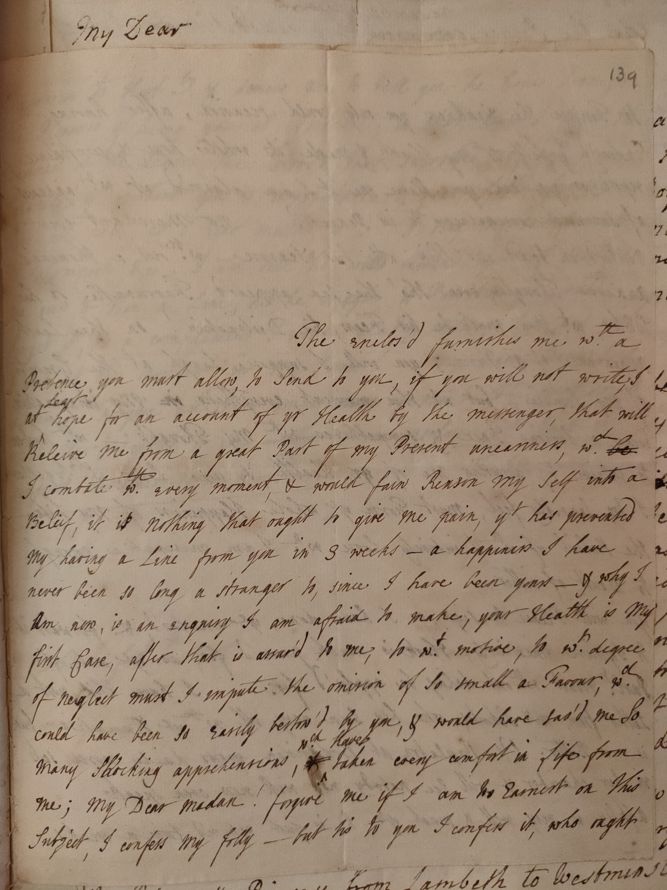 My Dear
139
The enclos'd furnishes me wth a
Pretence you must allow, to Send to you, if you will not write, I
at least hope for an account of yr Health by the messenger, that will
Releive me from a great Part of my Present uneasiness, wch
I combate wth every moment, & would fain Reason my Self into a
Belief, it is nothing that ought to give me pain, yt has prevented
My having a Line from you in 3 weeks – a happiness I have
never been so long a stranger to, since I have been yours – & why I
am now, is an Enquiry I am afraid to make, your Health is My
first Care, after that is assur'd to me, to wt motive, to wt degree
of neglect must I impute the omision of So small a Favour, wch
could have been so Easily bestow'd by you, & would have sav'd me So
many Shocking apprehensions, wch have taken every comfort in Life from
me; My Dear madan! forgive me if I am to Earnest on this
Subject, I confess My folly – but tis to you I confess it, who ought
from Lambeth to Westmins